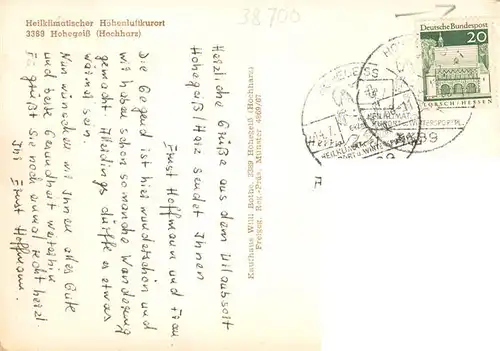 Heilklimatischer Höhenluftkurort
3389 Hohegeiß (Hochharz)
38700
Herzliche Grüße aus dem Urlaubsort
Hohegeiß/Harz sendet Ihnen
Ernst Hoffmann und Frau.
Die Gegend ist hier wunderschön und
wir haben schon so manche Wanderung
gemacht. Allerdings dürfte es etwas
wärmer sein.
Nun wünschen wir Ihnen alles Gute
und beste Gesundheit weiterhin
Es grüßt Sie noch einmal recht herzl.
Ihr Ernst Hoffmann.
Kaufhaus Willi Rothe, 3389 Hohegeiß (Hochharz)
Freigen. Reg.-Präs. Münster
Deutsche Bundespost
20
LORSCH-HESSEN
HEILKLIMAT.
KURORT